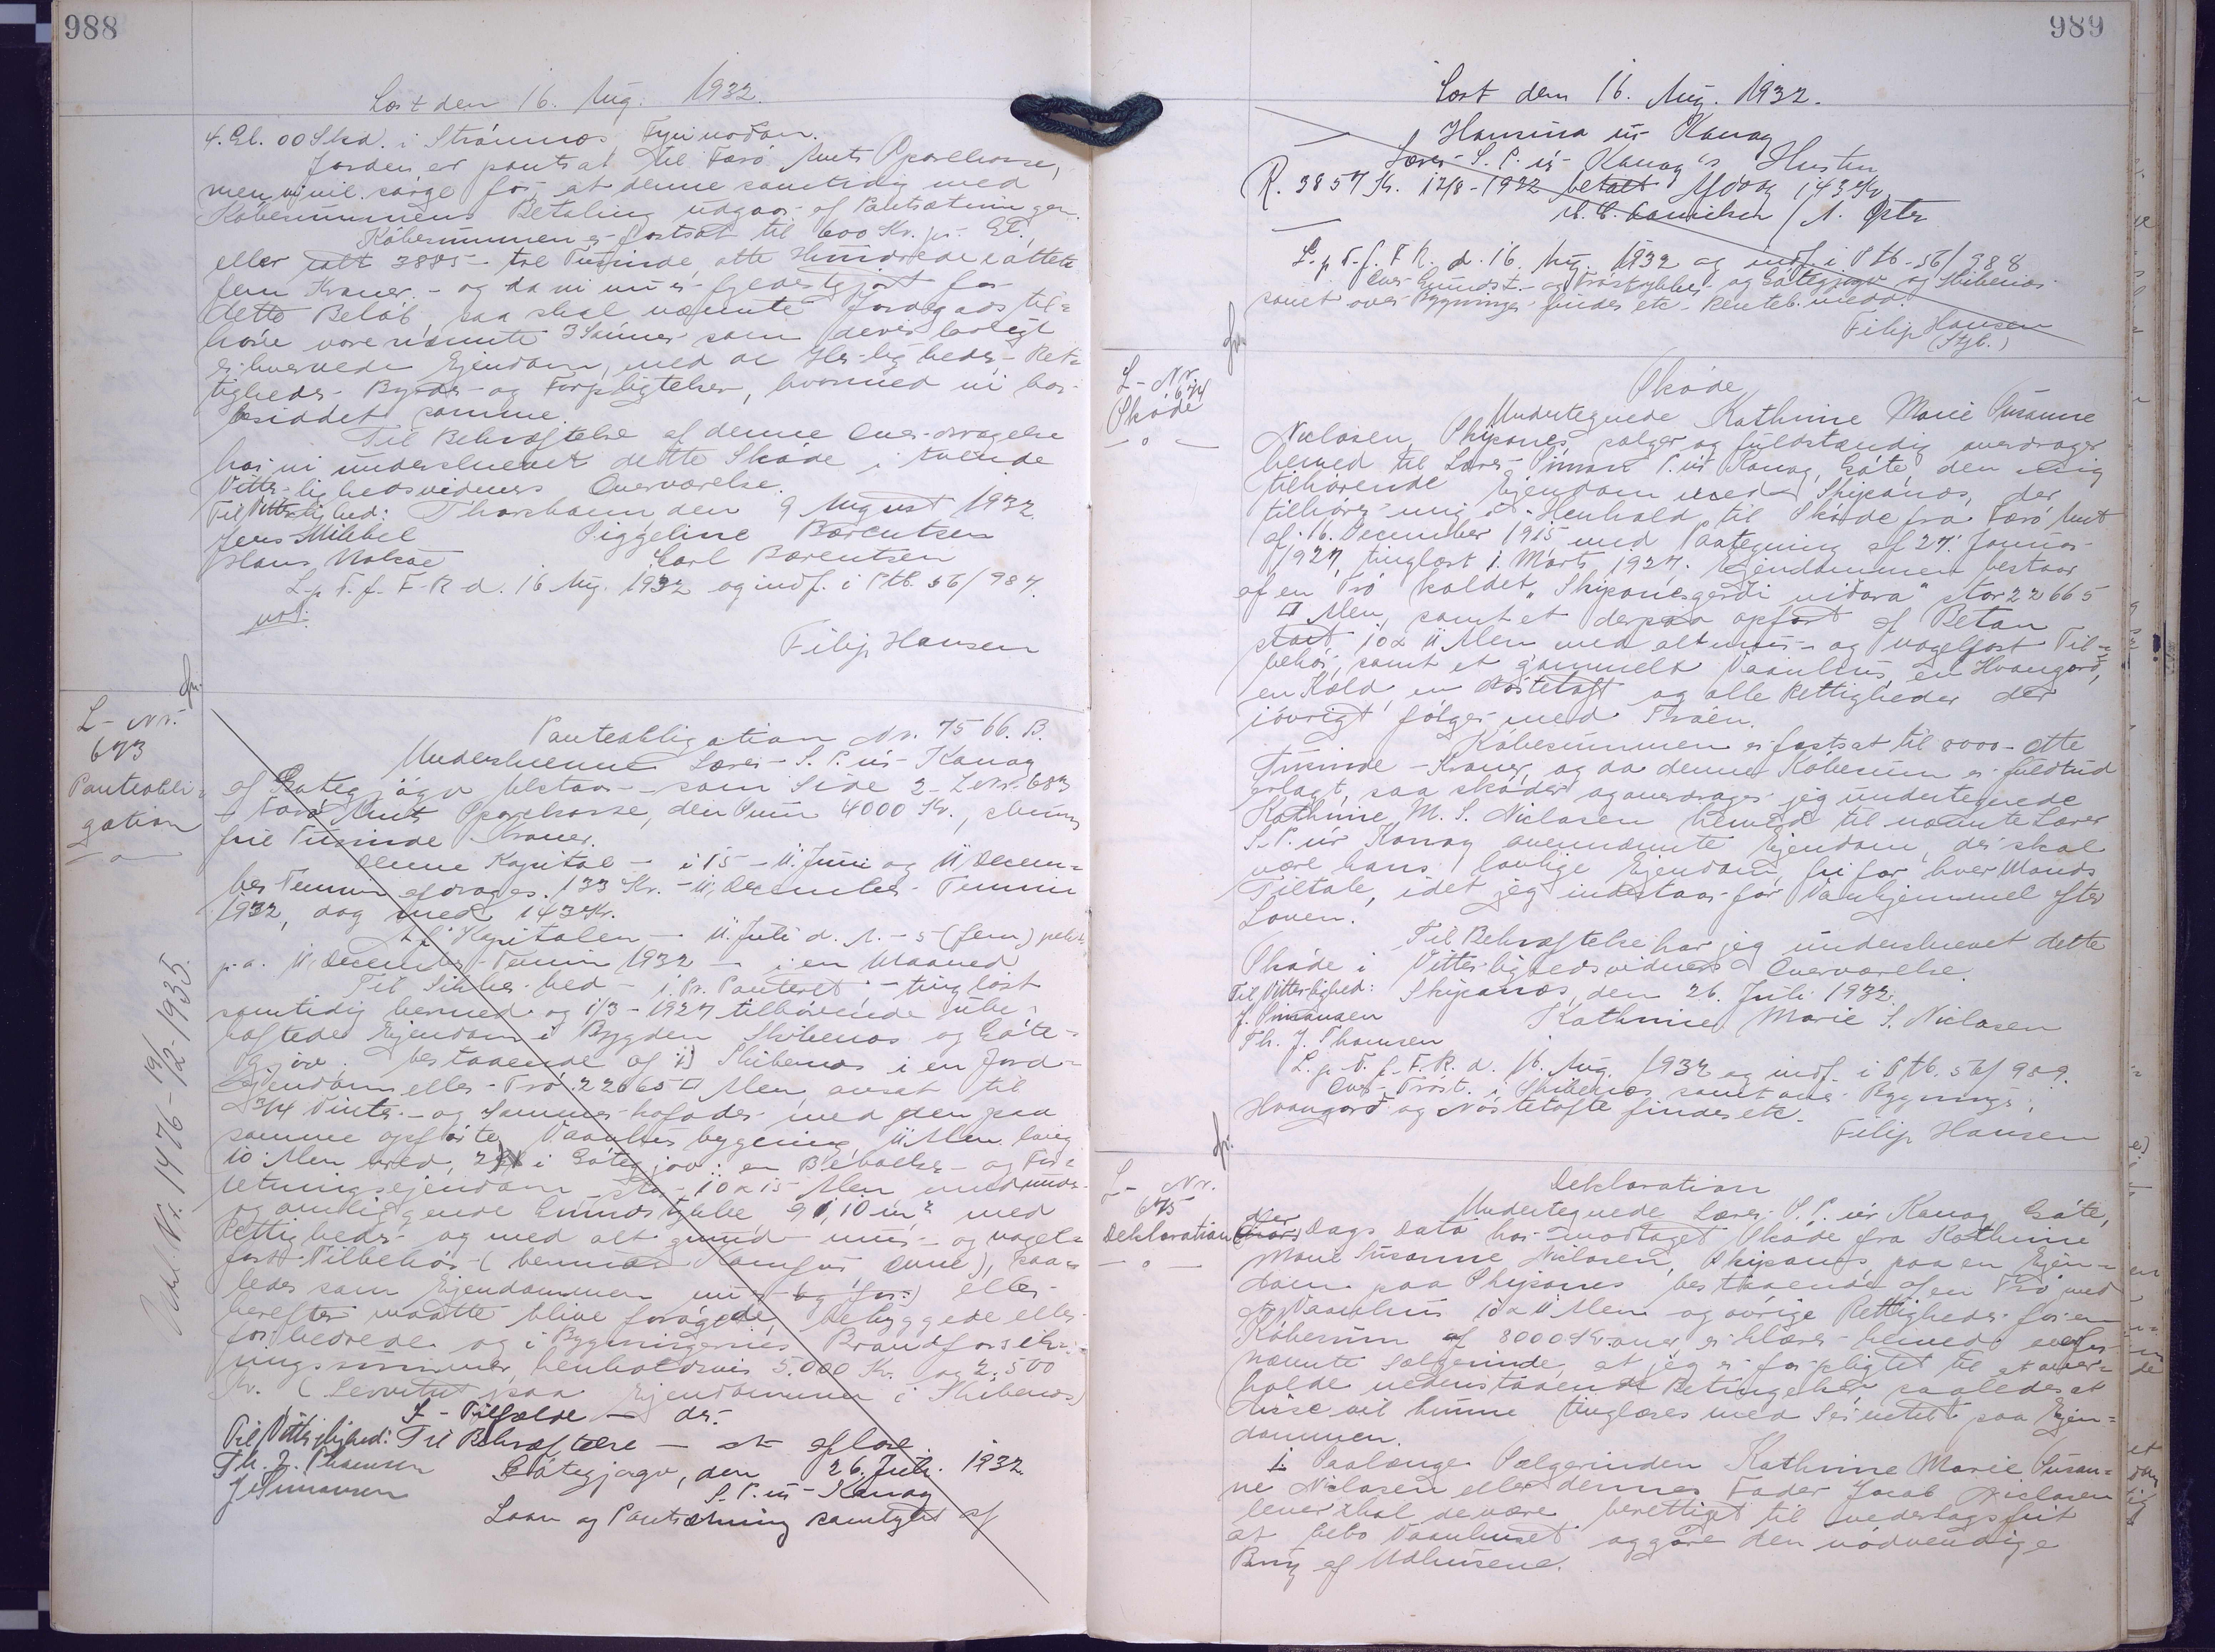 988
Læst den 16. Aug. 1932.
4. Gl. 00 Skd. i Strømnæs Fyri nordan.
Jorden er pantsat til Færø Amts Sparekasse,
men vi vil sørge for, at denne samtidig med
Købesummens Betaling udgaar af Pantsætningen.
Købesummen er fastsat til 600 Kr. pr. Gl.
eller ialt 3885 - tre Tusinde otte Hundrede i ottete
fem Kroner - og da vi nu er fyldestgjort for
dette Beløb, saa skal nævnte Jord gods til=
høre vore nævnte 3 Sønner som deres lovligt
erhvervede Ejendom, med de Herligheder, Ret=
tigheder, Byrder og Forpligtelser, hvormed vi har
besiddet samme.
Til Bekræftelse af denne Overdragelse
har vi underskrevet dette Skøde i tvende
Vitterlighedsvidners Overværelse.
Til Vitterlighed: Thorshavn den 9 August 1932.
Jens Mikkel Siggeline Bærentsen
Hans Nolsøe Carl Bærentsen
L. p. T. f. F. R. d. 16 Aug. 1932 og indf. i Ptb. 56/987.
Filip Hansen
L-Nr.
673
Panteobli=
gation
Panteobligation Nr. 7566. B.
Underskrevne Lærer S. P. úr Kanag
af Gøtegjógv tilstaar - som Side 2 - L.Nr. 683
Færø Amts Sparekasse, den Sum 4000 Kr., skriver
fire Tusinde Kroner.
Denne Kapital - i 15 - 11. Juni og 11 Decem=
ber Termin afdrages 133 Kr. - 11. December Termin
1932, dog med 143 Kr.
Af Kapitalen - 11. Juli d. A. - 5 (fem)
p.a. 11. December Termin 1932 - i en Maaned
Til Sikkerhed - i. Pr. Panteret - tinglæst
samtidig hermed og 1/3 - 1927 tilhørende ube=
hæftede Ejendom i Bygden Skibenæs og Gøte=
gjov. bestaaende af 1) Skibenæs i en Jord=
Ejendom eller Trø 22665 □ Alen ansat til
3/4 Vinter- og Sommer-hofoder med den paa
samme opførte Vaanhusbygning, 11 Alen lang
10 Alen bred, 2) i Gøtegjov: en Beboelse- og For=
retningsejendom str. 10 x 15 Alen med under
og omliggende Grundstykke 91,10 m² med
Rettigheder og med alt grund- mur- og nagel=
fast Tilbehør (herunder Komfur Ovne), saa=
ledes som Ejendommen nu er og for) eller
herefter maatte blive forøgede, bebyggede eller
forbedrede og i Bygningernes Brandforsikr=
ingssummer, henholdsvis 5.000 Kr. og 2.500
Kr. (Servitut paa Ejendommen i Skibenæs)
I - Tilfælde - der.
Til Vitterlighed: Til Bekræftelse - at aflæse
Th. J. Thomsen Gøtegjogv, den 26. Juli 1932.
J. Simonsen S. P. úr Kanag
Laan og Pantsætning samtykkes af
Aukt. Nr. 1476 - 19/12 - 1935.
989
Læst den 16. Aug. 1932.
Hansina úr Kanag
Lærer S. P. úr Kanag's Hustru
R. 3857 Kr. 12/8 - 1932 betalt Afdrag 143 Kr.
M. C. Danielsen / A. Øster
L. p. T. f. F. R. d. 16. Aug. 1932 og indf. i Ptb. 56/988
Over Grundst.- og Trøstykker og Gøtegjogv og Skibenæs
samt over Bygninger findes etc. Renteb. medd.
Filip Hansen
(Stpl.)
L-Nr.
674
Skøde
Skøde
Undertegnede Kathrine Marie Susanne
Niclasen, Skipanes sælger og fuldstændig overdrager
herved til Lærer Simon P. úr Kanag, Gøte den mig
tilhørende Ejendom ved Skipánes, der
tilhører mig i Henhold til Skøde fra Færø Amt
af 16. December 1915 med Paategning af 27. Januar
1927, tinglæst 1. Marts 1927. Ejendommen bestaar
af en Trø kaldet "Skipanesgerdi vidara" stor 22665
□ Alen, samt et derpaa opført af Beton
stort 10 x 11 Alen med alt mur- og nagelfast Til=
behør, samt et gammelt Vaanhus, en Hvangard,
en Kæld, en Nøstetoft og alle Rettigheder der
iøvrigt følger med Trøen.
Købesummen er fastsat til 8000 - Otte
Tusinde - Kroner, og da denne Købesum er fuldtud
erlagt, saa skøder og overdrager jeg undertegnede
Kathrine M. S. Niclasen herved til nævnte Lærer
S. P. úr Kanag ovennævnte Ejendom, der skal
være hans lovlige Ejendom, fri for hver Mands
Tiltale, idet jeg indestaar for Vanhjemmel efter
Loven.
Til Bekræftelse har jeg underskrevet dette
Skøde i Vitterlighedsvidners Overværelse.
Til Vitterlighed: Skipanæs, den 26. Juli 1932.
J. Simonsen Kathrine Marie S. Niclasen
Th. J. Thomsen
L. p. T. f. F. R. d. 16. Aug. 1932 og indf. i Ptb. 56/989.
Over Trøst. i Skibenæs samt over Bygninger,
Hvangard og Nøstetofte findes etc.
Filip Hansen
L-Nr.
675
Deklaration
Deklaration
Undertegnede Lærer S. P. úr Kanag Gøte,
der Dags Dato har modtaget Skøde fra Kathrine
Marie Susanne Niclasen, Skipanes, paa en Ejen=
dom paa Skipanes bestaaende af en Trø med
et Vaanhus 10 x 11 Alen og øvrige Rettigheder for en
Købesum af 8000 Kroner erklærer herved overfor
nævnte Sælgerinde, at jeg er forpligtet til at over=
holde nedenstaaende Betingelser saaledes at
disse vil kunne tinglæses med Servitut paa Ejen=
dommen.
1. Saalænge Sælgerinden Kathrine Marie Susan=
ne Niclasen eller dennes Fader Jacob Niclasen
lever skal de være berettiget til vederlagsfrit
at bebo Vaanhuset og gøre den nødvendige
Brug af Udhusene.